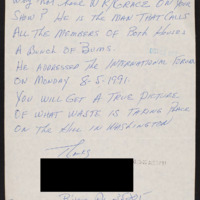 W/R/GRACE ON YOUR
SHOW? HE IS THE MAN THAT CALLS
ALL THE MEMBERS OF BOTH HOUSES
A BUNCH OF BUMS.
HE ADDRESSED THE INTERNATIONAL
ON MONDAY 8-5-1991.
YOU WILL GET A TRUE PICTURE
OF WHAT WASTE IS TAKING PLACE
ON THE HILL IN WASHINGTON!